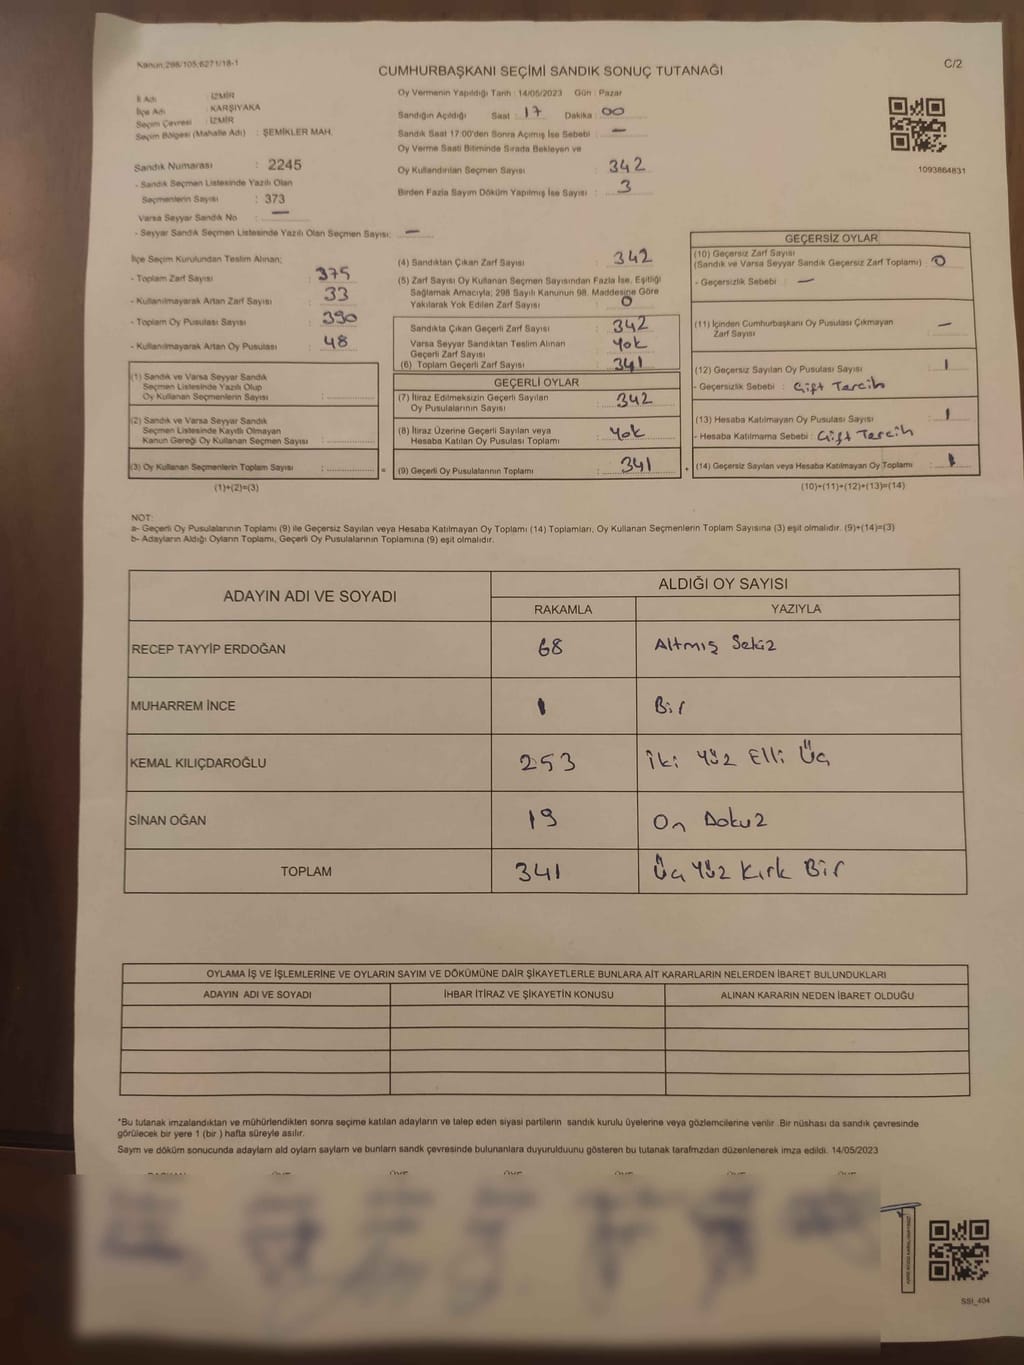 Kanun:298/105;6271/18-1
CUMHURBAŞKANI SEÇİMİ SANDIK SONUÇ TUTANAĞI
C/2
İl Adı : İZMİR
İlçe Adı : KARŞIYAKA
Seçim Çevresi : İZMİR
Seçim Bölgesi (Mahalle Adı) : ŞEMİKLER MAH.
Sandık Numarası : 2245
- Sandık Seçmen Listesinde Yazılı Olan
Seçmenlerin Sayısı : 373
Varsa Seyyar Sandık No : —
- Seyyar Sandık Seçmen Listesinde Yazılı Olan Seçmen Sayısı: —
Oy Vermenin Yapıldığı Tarih : 14/05/2023 Gün : Pazar
Sandığın Açıldığı Saat : 17 Dakika : 00
Sandık Saat 17:00'den Sonra Açımış İse Sebebi : —
Oy Verme Saati Bitiminde Sırada Bekleyen ve
Oy Kullandırılan Seçmen Sayısı : 342
Birden Fazla Sayım Döküm Yapılmış İse Sayısı : 3
1093864831
İlçe Seçim Kurulundan Teslim Alınan;
- Toplam Zarf Sayısı : 375
- Kullanılmayarak Artan Zarf Sayısı : 33
- Toplam Oy Pusulası Sayısı : 390
- Kullanılmayarak Artan Oy Pusulası : 48
(1) Sandık ve Varsa Seyyar Sandık
Seçmen Listesinde Yazılı Olup
Oy Kullanan Seçmenlerin Sayısı :
(2) Sandık ve Varsa Seyyar Sandık
Seçmen Listesinde Kayıtlı Olmayan
Kanun Gereği Oy Kullanan Seçmen Sayısı :
(3) Oy Kullanan Seçmenlerin Toplam Sayısı : =
(1)+(2)=(3)
(4) Sandıktan Çıkan Zarf Sayısı : 342
(5) Zarf Sayısı Oy Kullanan Seçmen Sayısından Fazla İse, Eşitliği
Sağlamak Amacıyla; 298 Sayılı Kanunun 98. Maddesine Göre
Yakılarak Yok Edilen Zarf Sayısı : 0
Sandıkta Çıkan Geçerli Zarf Sayısı : 342
Varsa Seyyar Sandıktan Teslim Alınan
Geçerli Zarf Sayısı : Yok
(6) Toplam Geçerli Zarf Sayısı : 341
GEÇERLİ OYLAR
(7) İtiraz Edilmeksizin Geçerli Sayılan
Oy Pusulalarının Sayısı : 342
(8) İtiraz Üzerine Geçerli Sayılan veya
Hesaba Katılan Oy Pusulası Toplamı : Yok
(9) Geçerli Oy Pusulalarının Toplamı : 341 +
GEÇERSİZ OYLAR
(10) Geçersiz Zarf Sayısı
(Sandık ve Varsa Seyyar Sandık Geçersiz Zarf Toplamı) : 0
- Geçersizlik Sebebi : —
(11) İçinden Cumhurbaşkanı Oy Pusulası Çıkmayan
Zarf Sayısı : —
(12) Geçersiz Sayılan Oy Pusulası Sayısı : 1
- Geçersizlik Sebebi : Çift Tercih
(13) Hesaba Katılmayan Oy Pusulası Sayısı : 1
- Hesaba Katılmama Sebebi : Çift Tercih
(14) Geçersiz Sayılan veya Hesaba Katılmayan Oy Toplamı : 1
(10)+(11)+(12)+(13)=(14)
NOT:
a- Geçerli Oy Pusulalarının Toplamı (9) ile Geçersiz Sayılan veya Hesaba Katılmayan Oy Toplamı (14) Toplamları, Oy Kullanan Seçmenlerin Toplam Sayısına (3) eşit olmalıdır. (9)+(14)=(3)
b- Adayların Aldığı Oyların Toplamı, Geçerli Oy Pusulalarının Toplamına (9) eşit olmalıdır.
ADAYIN ADI VE SOYADI ALDIĞI OY SAYISI
RAKAMLA YAZIYLA
RECEP TAYYİP ERDOĞAN 68 Altmış Sekiz
MUHARREM İNCE 1 Bir
KEMAL KILIÇDAROĞLU 253 İki Yüz Elli Üç
SİNAN OĞAN 19 On Dokuz
TOPLAM 341 Üç Yüz Kırk Bir
OYLAMA İŞ VE İŞLEMLERİNE VE OYLARIN SAYIM VE DÖKÜMÜNE DAİR ŞİKAYETLERLE BUNLARA AİT KARARLARIN NELERDEN İBARET BULUNDUKLARI
ADAYIN ADI VE SOYADI İHBAR İTİRAZ VE ŞİKAYETİN KONUSU ALINAN KARARIN NEDEN İBARET OLDUĞU
*Bu tutanak imzalandıktan ve mühürlendikten sonra seçime katılan adayların ve talep eden siyasi partilerin sandık kurulu üyelerine veya gözlemcilerine verilir .Bir nüshası da sandık çevresinde
görülecek bir yere 1 (bir ) hafta süreyle asılır.
Saym ve döküm sonucunda adaylarn ald oylarn saylarn ve bunlarn sandk çevresinde bulunanlara duyurulduunu gösteren bu tutanak tarafmzdan düzenlenerek imza edildi. 14/05/2023
SSI_404